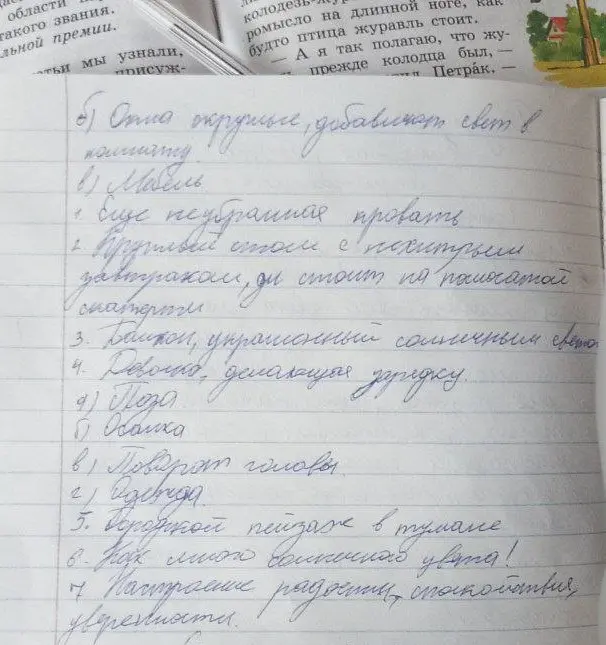 области
такого звания.
льной премии.
тьи мы узнали,
присуж-
колодезь-жур
ромысло на длинной ноге, как
будто птица журавль стоит.
— А я так полагаю, что жу-
прежде колодца был, —
Петра́к. —
б) Окна округлые, добавляют свет в
комнату.
в) Мебель
1. Еще неубранная кровать
2. Круглый стол с нехитрым
завтраком, он стоит на полосатой
скатерти
3. Балкон, украшенный солнечным свето
4. Девочка, делающая зарядку.
а) Поза
б) Осанка
в) Поворот головы.
г) Одежда.
5. Городской пейзаж в тумане
6. Как много солнечного цвета!
7 Настроение радости, спокойствия,
уверенности.